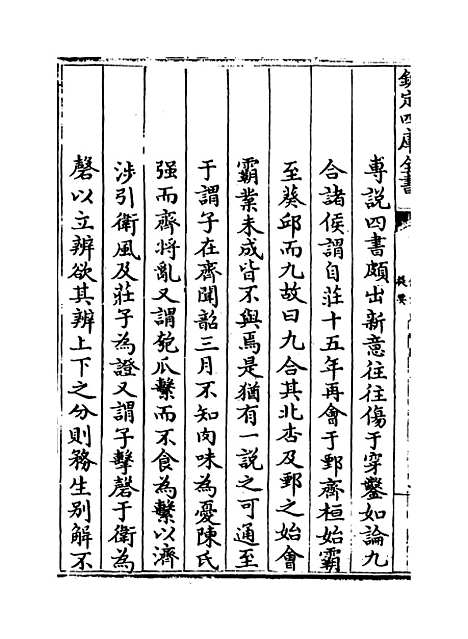 欽定四庫全書
提要
專説四書頗出新意往往傷于穿鑿如論九
合諸侯謂自莊十五年再會于鄄齊桓始霸
至葵邱而九故曰九合其北杏及鄄之始會
霸業未成皆不與焉是猶有一説之可通至
于謂子在齊聞韶三月不知肉味為憂陳氏
强而齊將亂又謂匏瓜繫而不食為繫以濟
涉引衛風及莊子為證又謂子擊磬于衛為
磬以立辨欲其辨上下之分則務生别解不